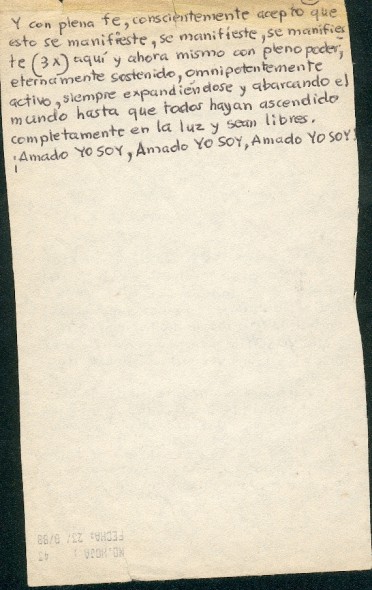 Y con plena fe, conscientemente acepto que
esto se manifieste, se manifieste, se manifies
te (3x) aquí y ahora mismo con pleno poder,
eternamente sostenido, omnipotentemente
activo, siempre expandiéndose y abarcando el
mundo hasta que todos hayan ascendido
completamente en la luz y sean libres.
¡Amado YO SOY, Amado YO SOY, Amado YO SOY!
FECHA: 23/ 8/88
NO. HOJA : 43